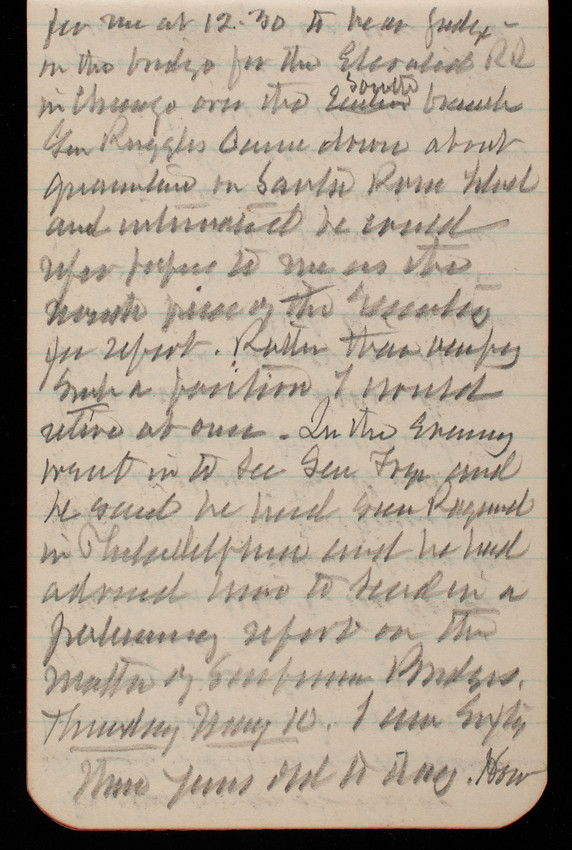 for me at 12.30 to hear
on the bridge for the Elevated RR
in Chicago over the South branch
Gen Ruggles came down about
quarantine on Santa Rosa Island
and intimated he would
refer papers to me as the
mouth piece of the Secretary
for report. Rather than occupy
such a position I would
retire at once. In the Evening
went in to see Gen and
he said he had seen Raymond
in Philadelphia and he had
advised him to send in a
preliminary report on the
matter of Bridges.
Thursday May 10. I am Sixty
three years old to day. How